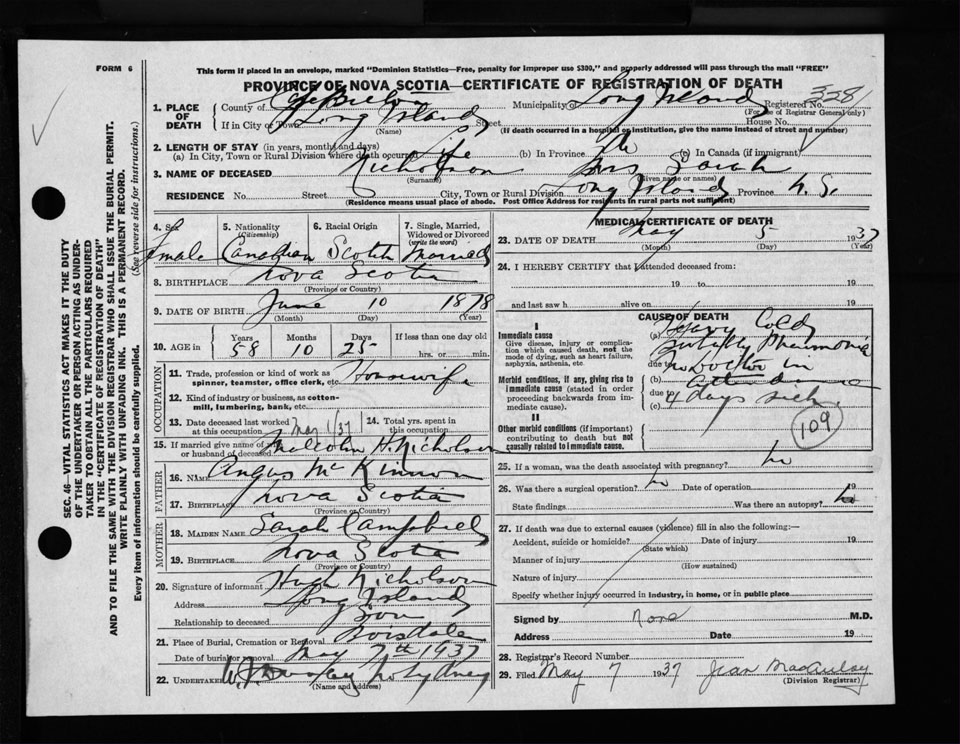 FORM 6
This form if placed in an envelope, marked "Dominion Statistics—Free, penalty for improper use $300," and properly addressed will pass through the mail "FREE"
PROVINCE OF NOVA SCOTIA—CERTIFICATE OF REGISTRATION OF DEATH
1. PLACE OF DEATH
County of Cape Breton Municipality of Long Island Registered No. 3281
(For use of Registrar General only)
If in City or Town Long Island Street House No.
(Name) (If death occurred in a hospital or institution, give the name instead of street and number)
2. LENGTH OF STAY (in years, months and days)
(a) In City, Town or Rural Division where death occurred Life (b) In Province (c) In Canada (if immigrant)
3. NAME OF DECEASED Nicholson Mrs Sarah
(Surname) (Given name or names)
RESIDENCE No. Street City, Town or Rural Division Long Island Province N.S.
(Residence means usual place of abode. Post Office Address for residents in rural parts not sufficient)
4. Sex Female
5. Nationality (Citizenship) Canadian
6. Racial Origin Scotch
7. Single, Married, Widowed or Divorced (write the word) Married
8. BIRTHPLACE Nova Scotia
(Province or Country)
9. DATE OF BIRTH June 10 1878
(Month) (Day) (Year)
10. AGE in Years 58 Months 10 Days 25 If less than one day old hrs. or min.
OCCUPATION
11. Trade, profession or kind of work as spinner, teamster, office clerk, etc. Housewife
12. Kind of industry or business, as cotton-mill, lumbering, bank, etc.
13. Date deceased last worked at this occupation May 1/37
14. Total yrs. spent in this occupation
15. If married give name of wife or husband of deceased Malcolm H. Nicholson
FATHER
16. NAME Angus McKinnon
17. BIRTHPLACE Nova Scotia
(Province or Country)
MOTHER
18. MAIDEN NAME Sarah Campbell
19. BIRTHPLACE Nova Scotia
(Province or Country)
20. Signature of informant Hugh Nicholson
Address Long Island
Relationship to deceased Son
21. Place of Burial, Cremation or Removal Boisdale
Date of burial or removal May 7th 1937
22. UNDERTAKER
(Name and address)
MEDICAL CERTIFICATE OF DEATH
23. DATE OF DEATH May 5 1937
(Month) (Day) (Year)
24. I HEREBY CERTIFY that I attended deceased from:
19 to 19
and last saw h alive on 19
CAUSE OF DEATH
I
Immediate cause
Give disease, injury or complication which caused death, not the mode of dying, such as heart failure, asphyxia, asthenia, etc.
(a) Heavy Cold
due to Probably Pneumonia
No Doctor in
Morbid conditions, if any, giving rise to immediate cause (stated in order proceeding backwards from immediate cause).
(b) attendance
due to
(c) 4 days sick
II
Other morbid conditions (if important) contributing to death but not causally related to immediate cause.
109
25. If a woman, was the death associated with pregnancy? No
26. Was there a surgical operation? No Date of operation 19
State findings Was there an autopsy? No
27. If death was due to external causes (violence) fill in also the following:—
Accident, suicide or homicide? Date of injury 19
(State which)
Manner of injury
(How sustained)
Nature of injury
Specify whether injury occurred in industry, in home, or in public place
Signed by None M.D.
Address Date 19
28. Registrar's Record Number
29. Filed May 7 1937 Jean MacAulay
(Division Registrar)
SEC. 46—VITAL STATISTICS ACT MAKES IT THE DUTY
OF THE UNDERTAKER OR PERSON ACTING AS UNDER-
TAKER TO OBTAIN ALL THE PARTICULARS REQUIRED
IN THE "CERTIFICATE OF REGISTRATION OF DEATH"
AND TO FILE THE SAME WITH THE DIVISION REGISTRAR WHO SHALL ISSUE THE BURIAL PERMIT.
WRITE PLAINLY WITH UNFADING INK. THIS IS A PERMANENT RECORD.
Every item of information should be carefully supplied. (See reverse side for instructions.)